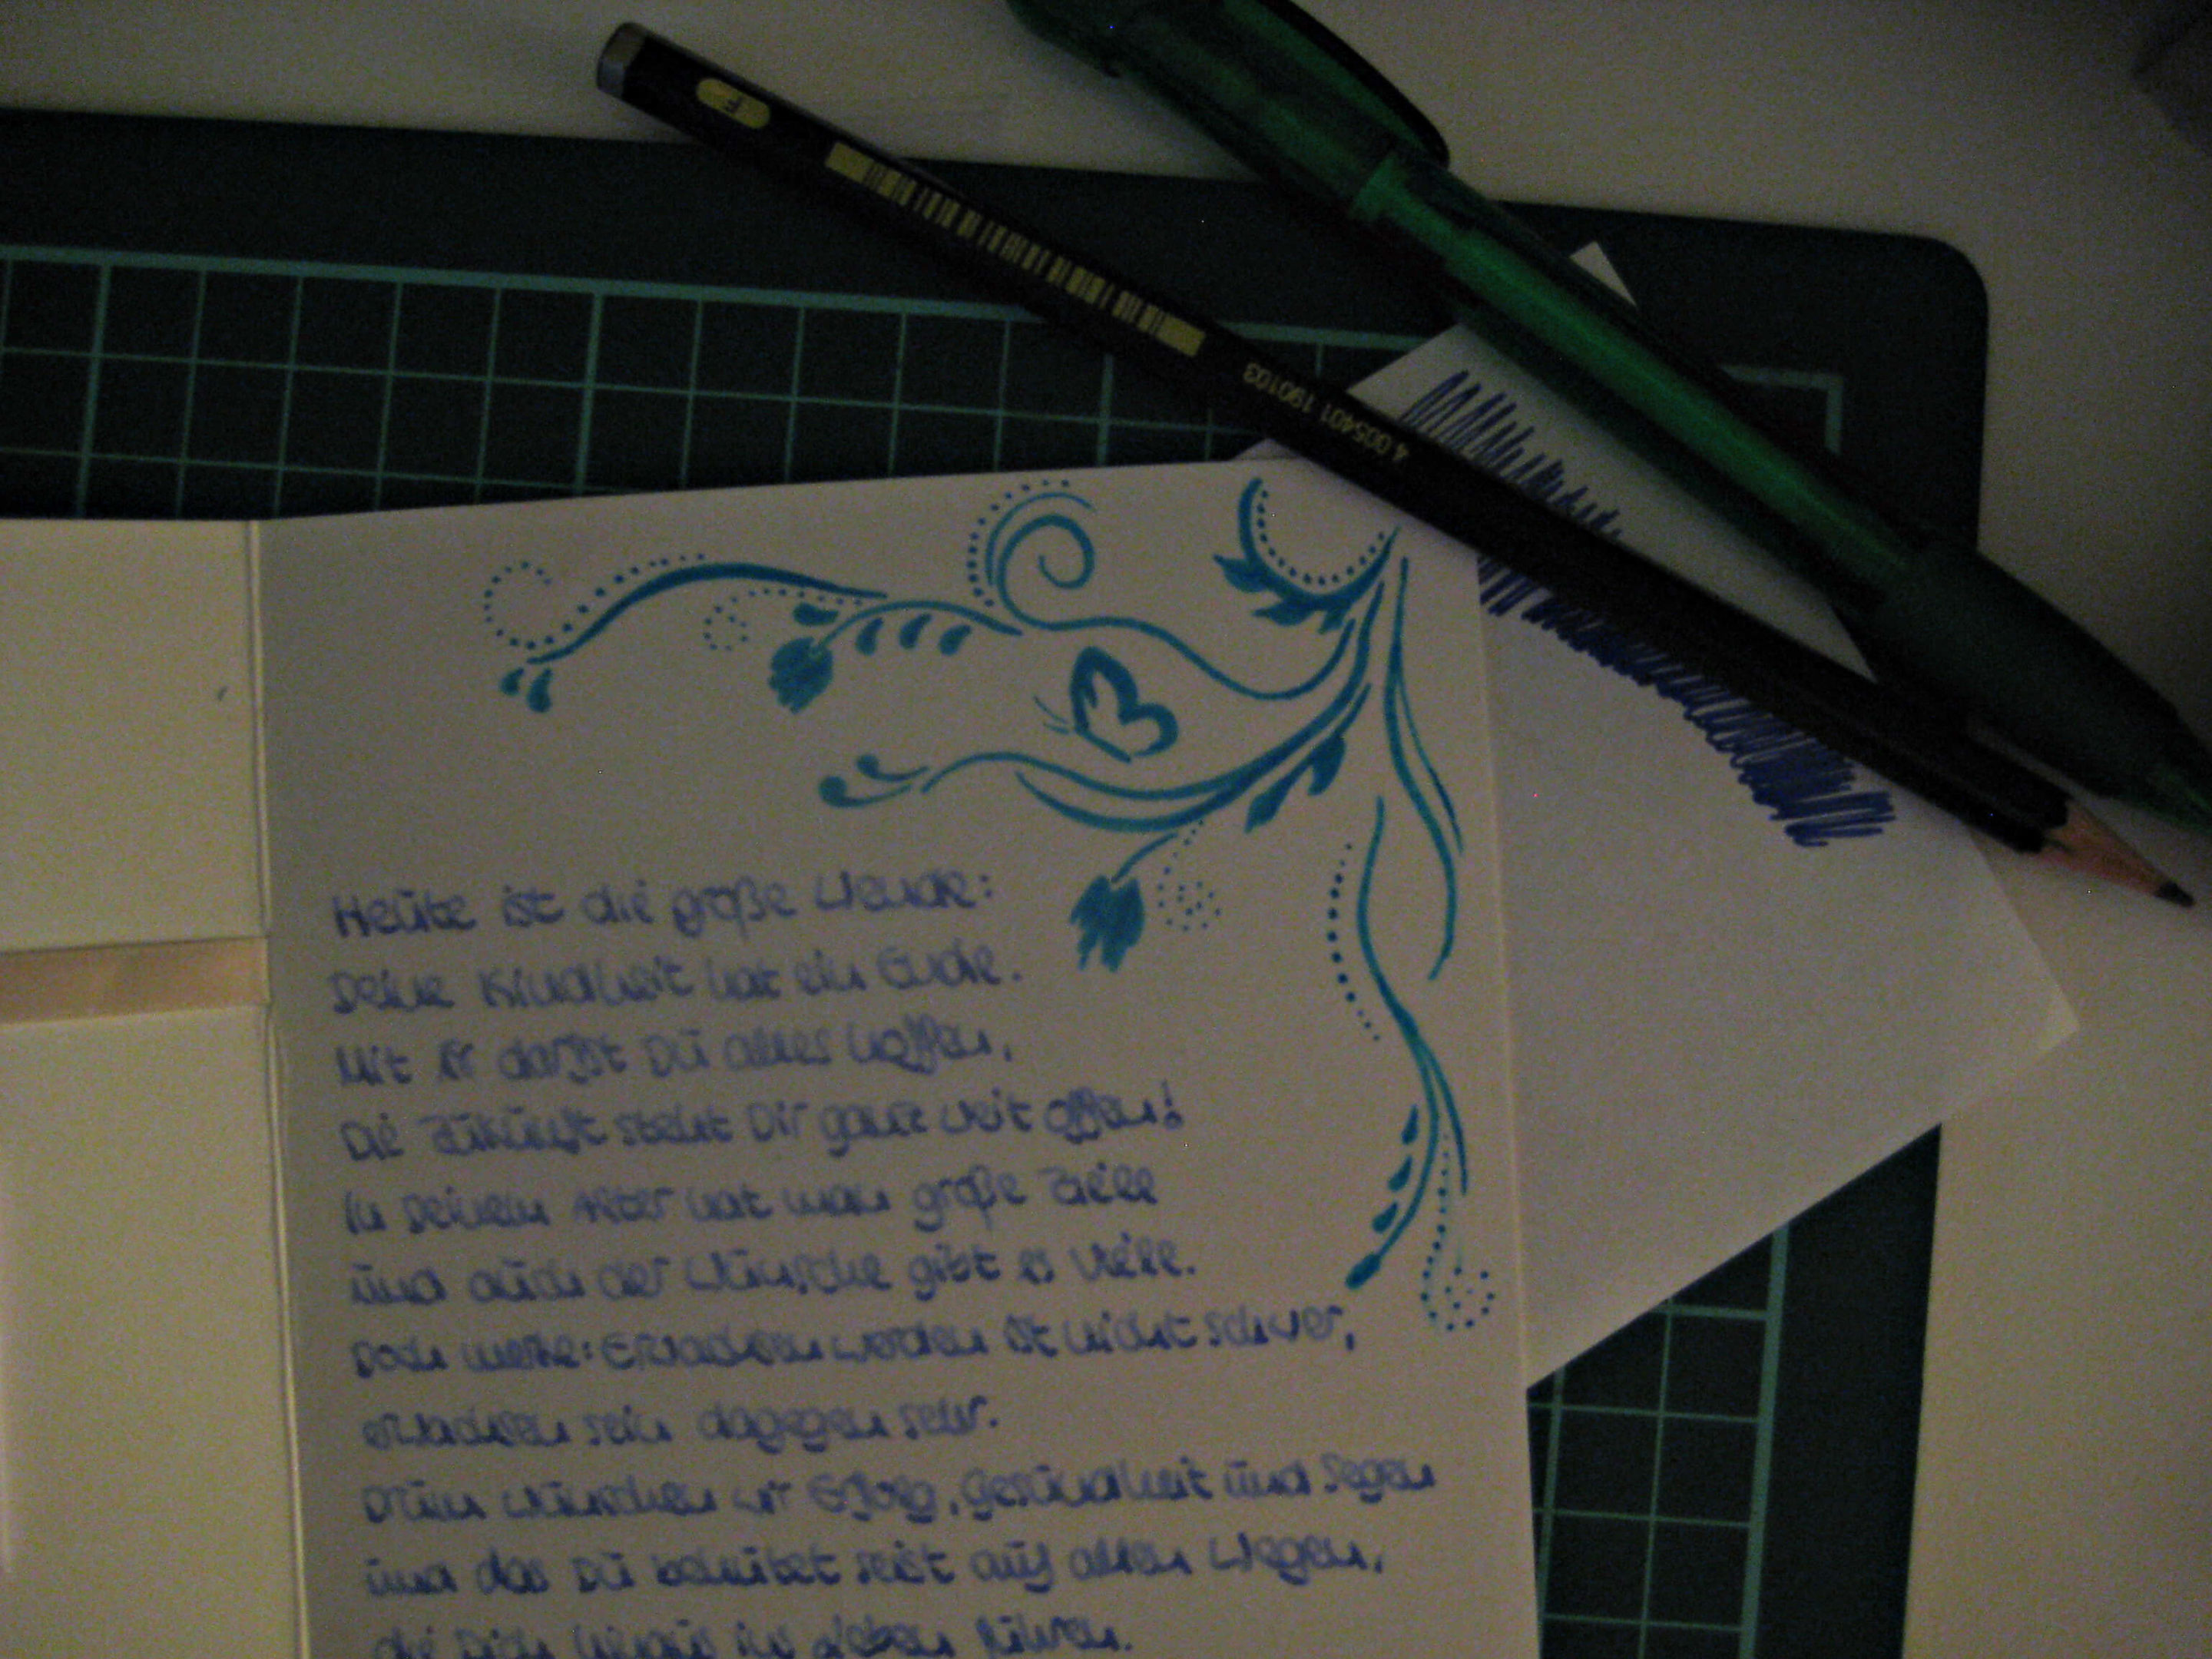 F
4 005401 190103
Heute ist die große Wende:
Deine Kindheit hat ein Ende.
Mit 18 darfst Du alles hoffen,
Die Zukunft steht Dir ganz weit offen!
In Deinem Alter hat man große Ziele
und auch der Wünsche gibt es viele.
Doch merke: Erwachsen werden ist nicht schwer,
erwachsen sein dagegen sehr.
Drum wünschen wir Erfolg, Gesundheit und Segen
und das Du behütet seist auf allen Wegen,
die Dich hinaus ins Leben führen.